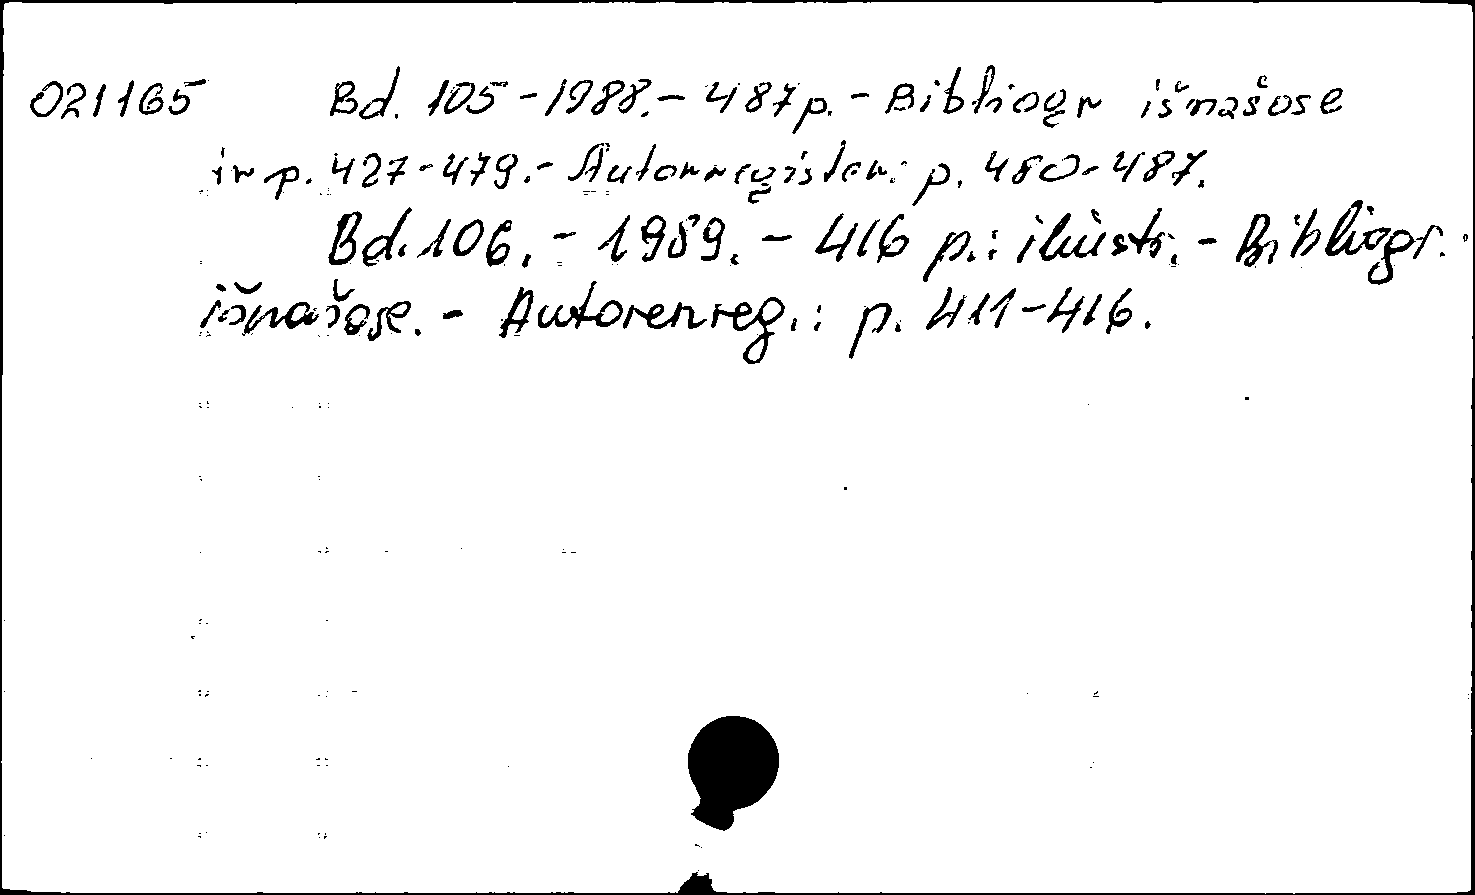 021165 Bd. 105 - 1988. - 487 p. - Bibliogr išnašose
ir p. 427-479. - Autorregister: p. 480-487.
Bd. 106. - 1989. - 416 p.: iliustr. - Bibliogr.:
išnašose. - Autorenreg.: p. 411-416.